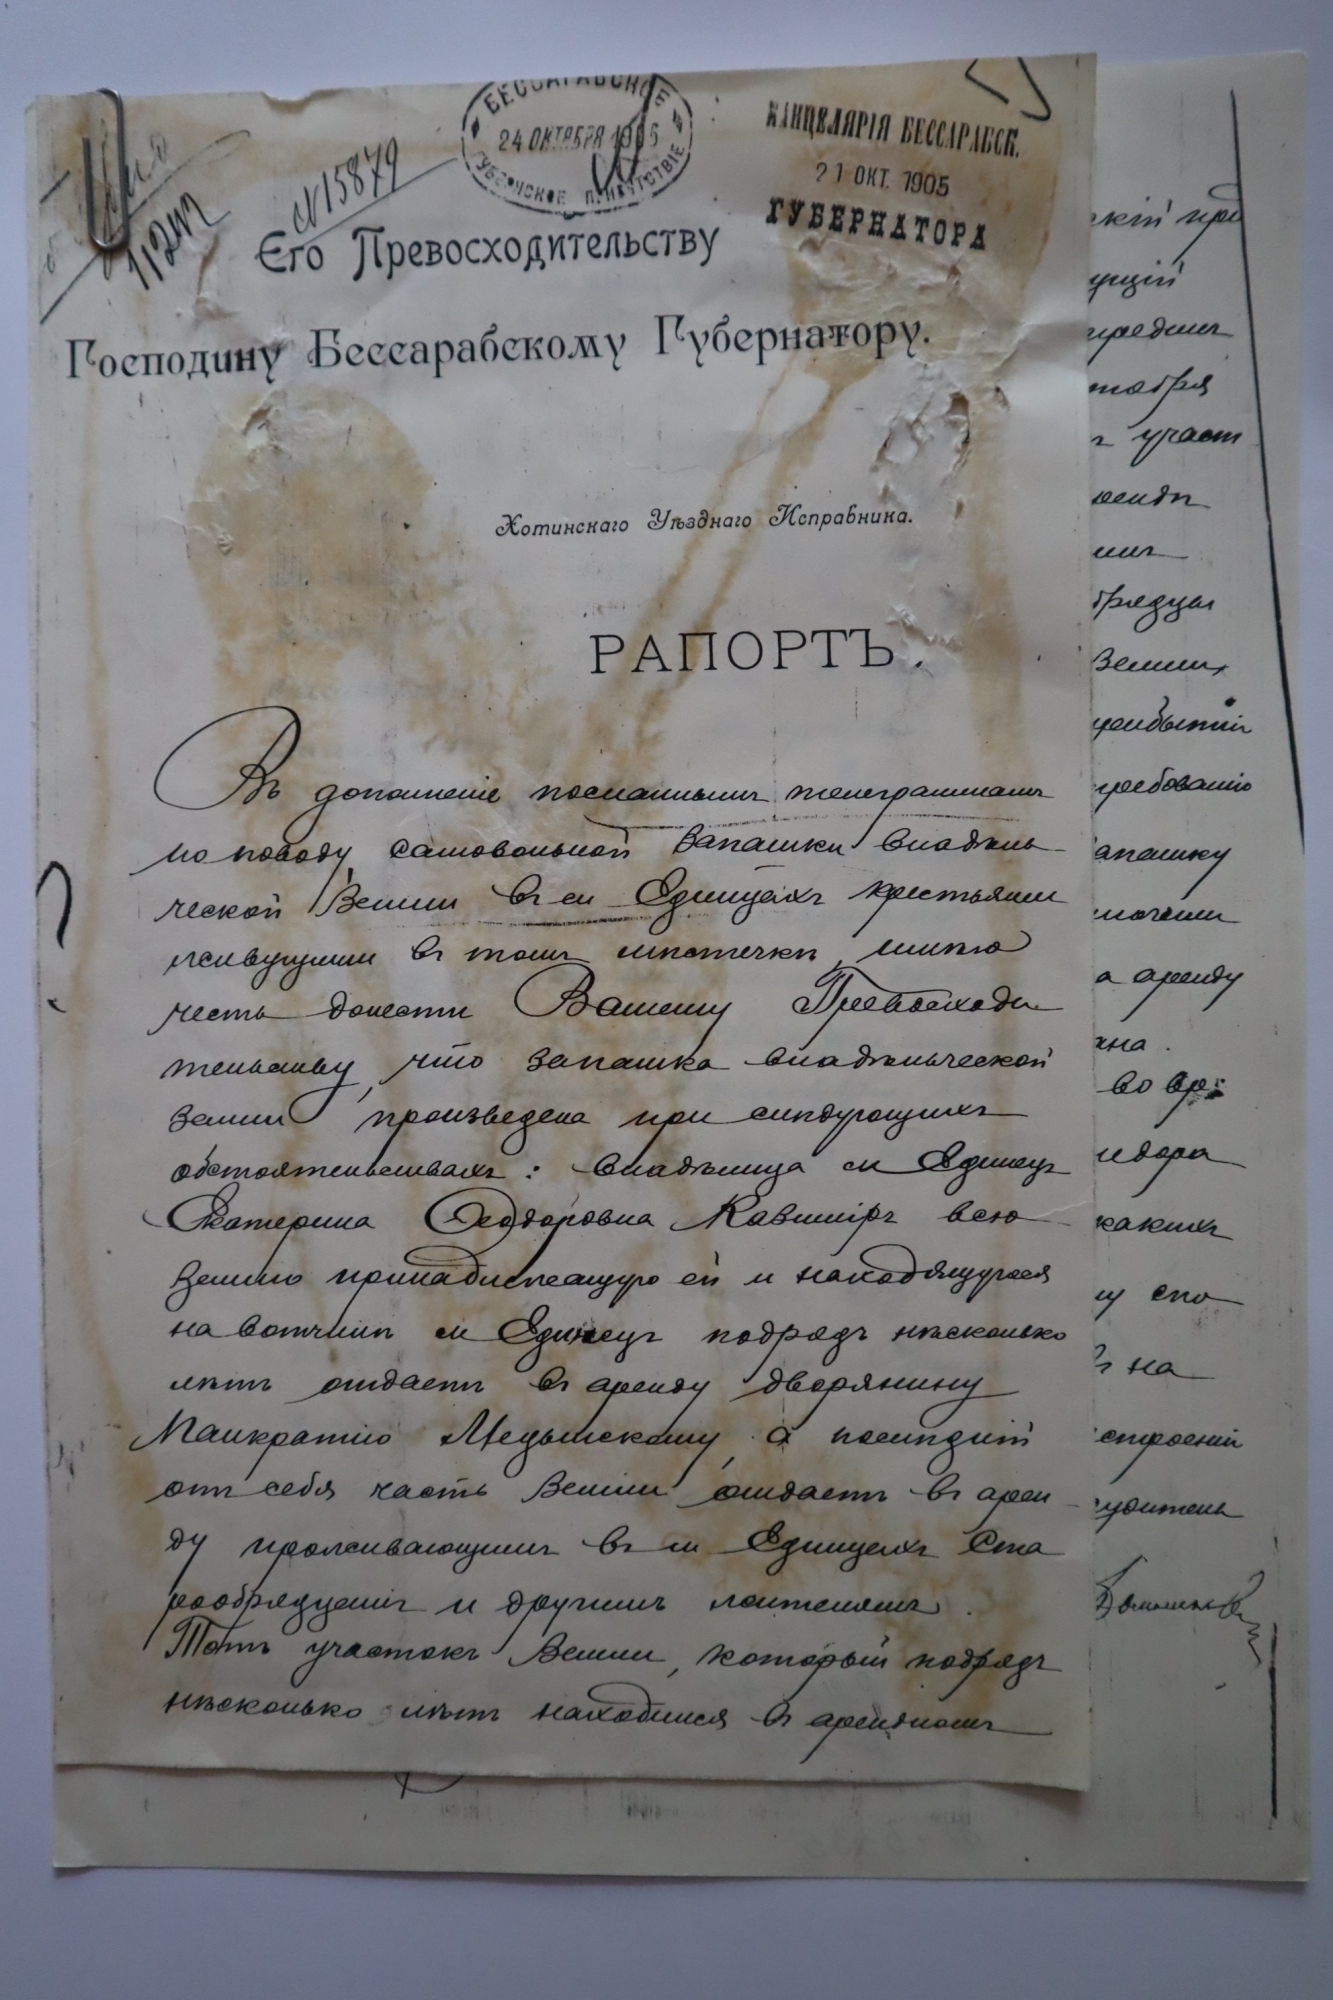 БЕССАРАБСКОЕ
24 ОКТЯБРЯ 1905
ГУБЕРНСКОЕ ПРИСУТСТВІЕ
КАНЦЕЛЯРІЯ БЕССАРАБСК.
21 ОКТ. 1905
ГУБЕРНАТОРА
№15879
Его Превосходительству
Господину Бессарабскому Губернатору.
Хотинскаго Уѣзднаго Исправника.
РАПОРТЪ.
Въ дополненіе посланнымъ телеграммамъ
по поводу самовольной запашки владѣль
ческой земли въ м Единцахъ крестьянами
живущими въ томъ мѣстечкѣ, имѣю
честь донести Вашему Превосходи
тельству, что запашка владѣльческой
земли произведена при слѣдующихъ
обстоятельствахъ: владѣлица м Единецъ
Екатерина Ѳеодоровна Казиміръ всю
землю принадлежащую ей и находящуюся
на вотчинѣ м Единецъ подрядъ нѣсколько
лѣтъ отдаетъ въ аренду дворянину
Панкратію Мецынскому, а послѣдній
отъ себя часть земли отдаетъ въ арен
ду проживающимъ въ м Единцахъ Ста
рообрядцамъ и другимъ жителямъ.
Тотъ участокъ земли, который подрядъ
нѣсколько лѣтъ находился въ арендномъ
ущій
тября
участ
рядцы
требованію
апашку
а аренду
во вр
идора
какихъ
на
строеній